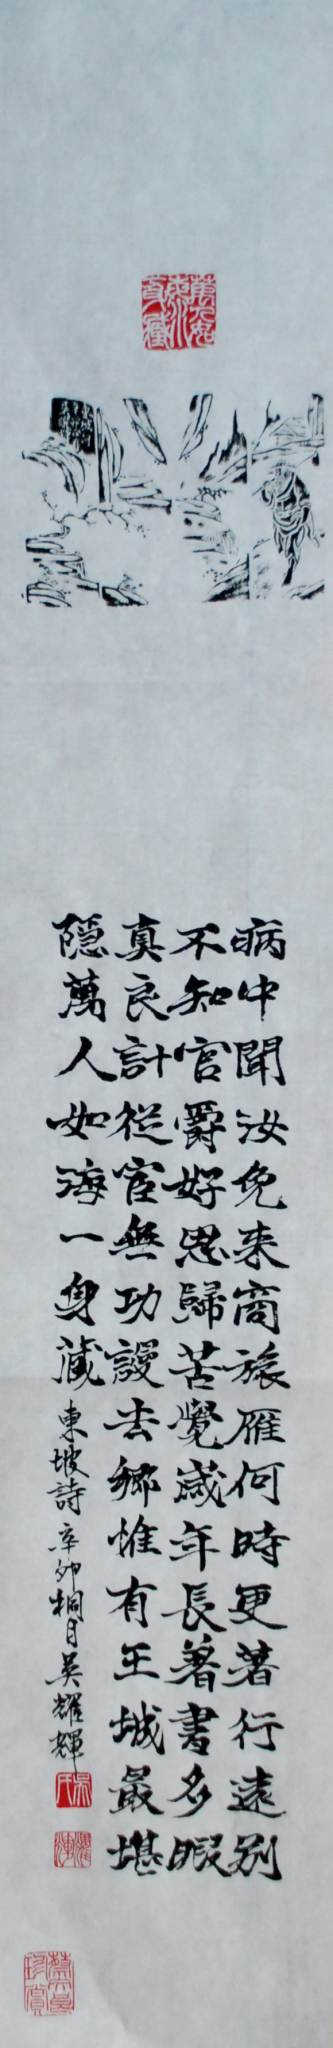 萬人如海一身藏
病中聞汝免来商旅雁何時更著行遠别
不知官爵好思歸苦覺歲年長著書多暇
真良計從宦無功謾去鄉惟有王城最堪
隱萬人如海一身藏 東坡詩 辛卯桐月吳耀輝
吳氏
耀輝